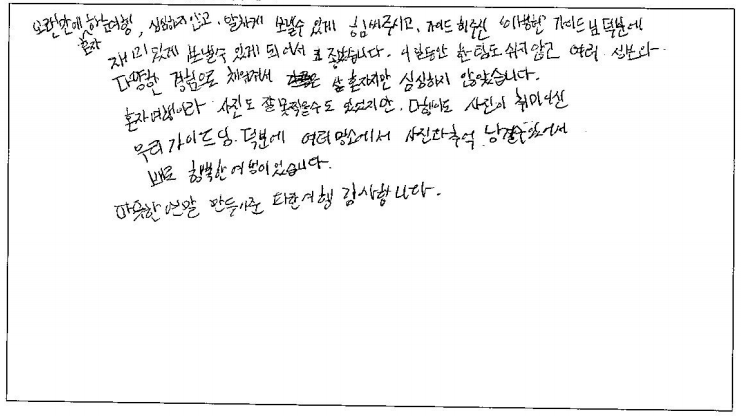 오랜만에 혼자 하는여행, 심심하지 않고, 알차게 보낼수 있게 힘써주시고, 가이드 해주신 "이병현" 가이드님 덕분에
재미있게 보낼수 있게 되어서 좋았습니다. 4일동안 한팀도 쉬지 않고 여러 정보와
다양한 경험으로 채워줘서 혼자지만 심심하지 않았습니다.
혼자여행이라 사진도 잘 못찍을수도 있었지만, 다행이도 사진이 취미이신
우리 가이드님. 덕분에 여러명소에서 사진과 추억 남길수있어서
행복한 여행이었습니다.
따뜻한 연말 만들어준 여행 감사합니다.